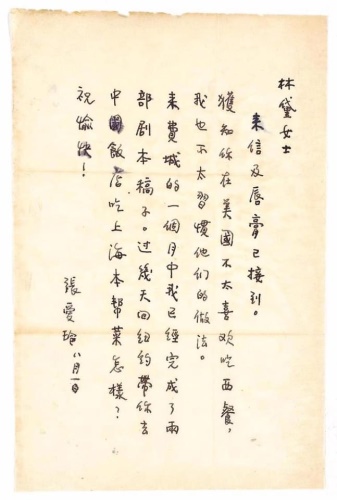 林黛女士
來信及唇膏已接到。
獲知你在美國不太喜欢吃西餐，
我也不太習慣他们的做法。
來費城的一個月中我已經完成了兩
部剧本稿子。过幾天回紐約帶你去
中國飯店吃上海本幫菜怎樣？
祝愉快！
張愛玲八月一日